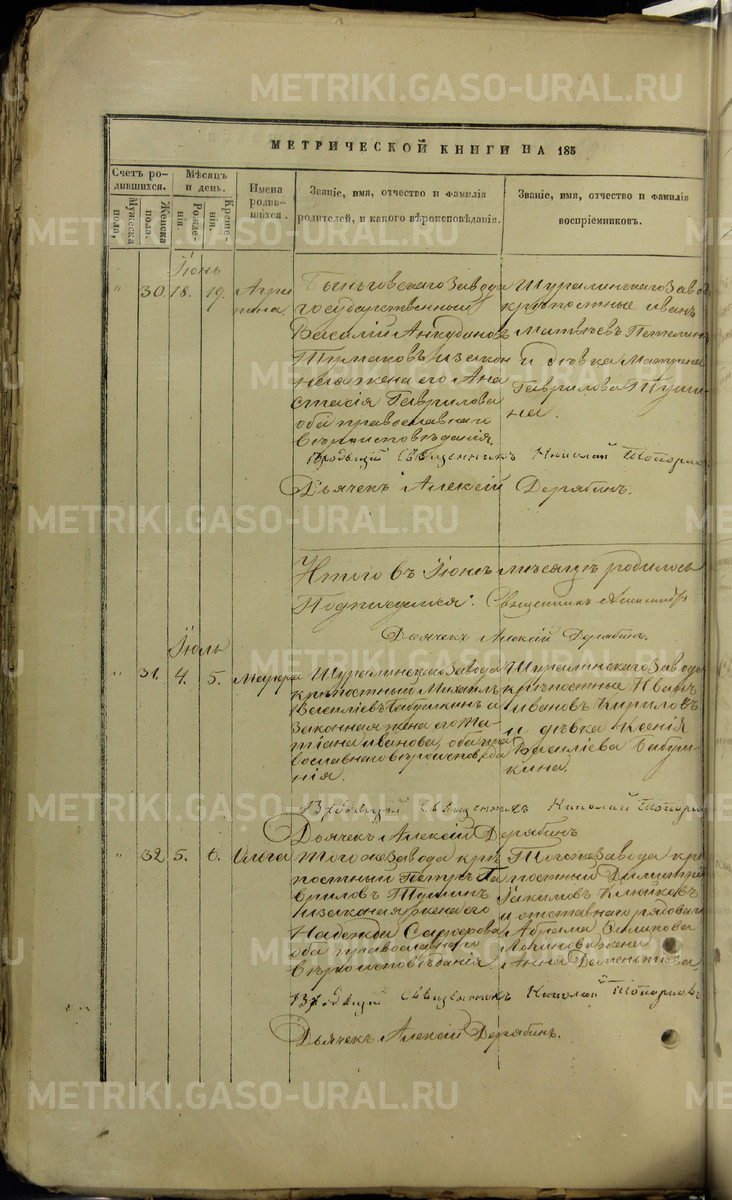 METRIKI.GASO-URAL.RU
МЕТРИЧЕСКОЙ КНИГИ НА 185
Счетъ родившихся.
Мужеска пола,
Женска пола.
Мѣсяцъ и день.
Рожденія.
Крещенія.
Имена родившихся.
Званіе, имя, отчество и фамилія родителей, и какого вѣроисповѣданія.
Званіе, имя, отчество и фамилія воспріемниковъ.
Іюнь
" 30. 18. 19. Агри
пина
Быньговскаго Завода
государственный
Василій Анкудиновъ
Тумаковъ и закон
ная жена его Ана
стасія Гаврилова
оба православнаго
вѣроисповѣданія.
Шуралинскаго Завод
крѣпостные Иванъ
Матвѣевъ Петелин
и дѣвка Матрена
Гаврилова Туши
на.
Священникъ Николай Топорко
Дьячекъ Алексій Дерябинъ.
Итого въ Іюнѣ мѣсяцѣ родилось
Священникъ
Дьячекъ Алексій Дерябинъ.
Іюль
" 31. 4. 5. Марѳа
Шуралинскаго Завода
крѣпостный Михаилъ
Василіевъ Бабушкинъ и
законная жена его Та
тіана Иванова, оба пра
вославнаго вѣроисповѣда
нія.
Шуралинскаго Завода
крѣпостные Иванъ
Ивановъ Кириловъ
и дѣвка Ксенія
Василіева Бабуш
кина.
Священникъ Николай Топорко
Дьячекъ Алексій Дерябинъ
" 32 5. 6. Ольга
Тогоже Завода крѣ
постный Петръ Га
вриловъ Тушинъ
и законая жена его
Надежда
оба православнаго
вѣроисповѣданія.
Тогоже Завода крѣ
постный Димитрій
и отставнаго рядоваго
Абрама Филипова
жена
Анна Дементьева.
Священникъ Николай Топорковъ
Дьячекъ Алексій Дерябинъ.